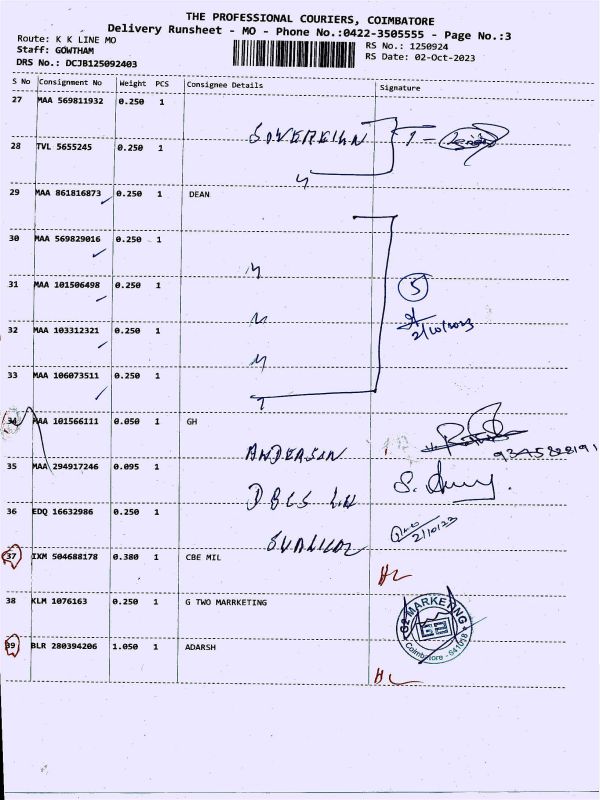 THE PROFESSIONAL COURIERS, COIMBATORE
Delivery Runsheet - MO - Phone No.:0422-3505555 - Page No.:3
Route: K K LINE MO
Staff: GOWTHAM
DRS No.: DCJB125092403
RS No.: 1250924
RS Date: 02-Oct-2023
S No Consignment No Weight PCS Consignee Details Signature
27 MAA 569811932 0.250 1
SOVEREIGN
28 TVL 5655245 0.250 1
29 MAA 861816873 0.250 1 DEAN
30 MAA 569829016 0.250 1
31 MAA 101506498 0.250 1
5
2/10/2023
32 MAA 103312321 0.250 1
33 MAA 106073511 0.250 1
34 MAA 101566111 0.050 1 GH
ANDERSON
9345828191
35 MAA 294917246 0.095 1
36 EDQ 16632986 0.250 1
2/10/23
37 IXM 504688178 0.380 1 CBE MIL
38 KLM 1076163 0.250 1 G TWO MARRKETING
G2 MARKETING
Coimbatore - 641018
39 BLR 280394206 1.050 1 ADARSH